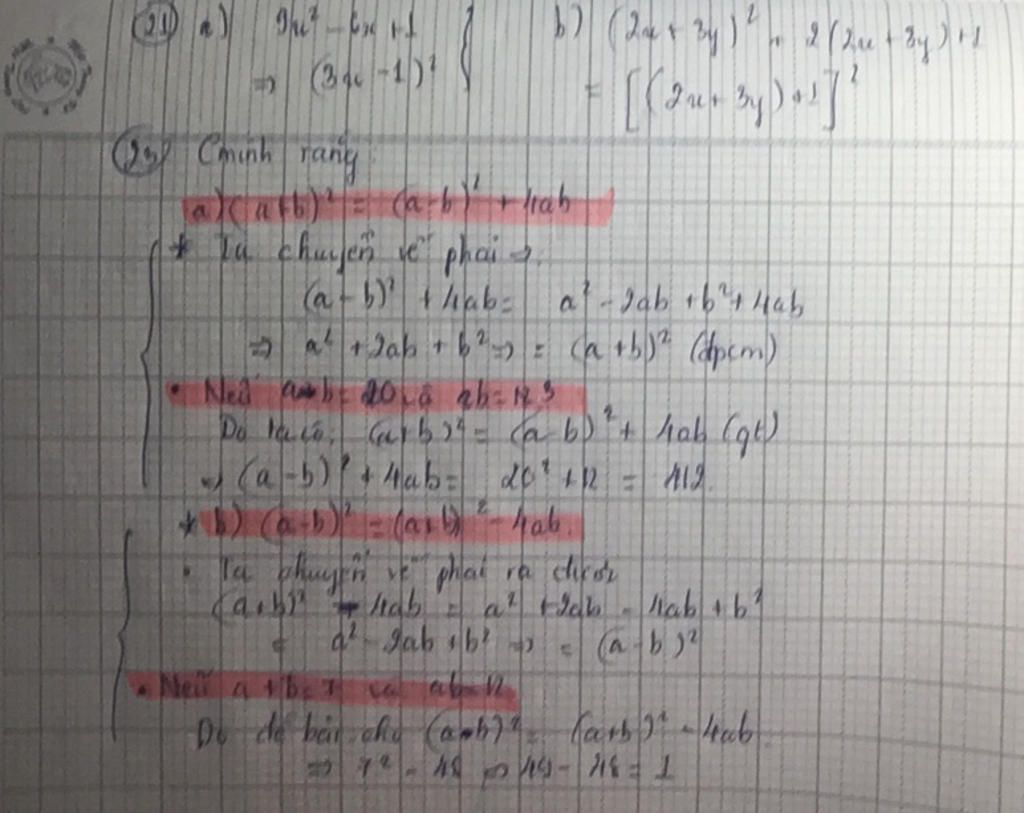 21) a) 9x² - 6x + 1
⇒ (3x - 1)²
b) (2x + 3y)² + 2(2x + 3y) + 1
= [(2x + 3y) + 1]²
23) Cminh rằng
a) (a+b)² = (a-b)² + 4ab
* Ta chuyển vế phải ⇒
(a - b)² + 4ab = a² - 2ab + b² + 4ab
⇒ a² + 2ab + b² ⇒ = (a + b)² (đpcm)
• Nếu a-b = 20 và ab = 3
Do ta có: (a+b)² = (a-b)² + 4ab (gt)
⇒ (a - b)² + 4ab = 20² + 12 = 412.
* b) (a-b)² = (a+b)² - 4ab.
• Ta chuyển vế phải ra được
(a+b)² - 4ab = a² + 2ab - 4ab + b²
= a² - 2ab + b² ⇒ = (a - b)²
• Nếu a + b = 7 và ab = 12
Do đề bài cho (a-b)² = (a+b)² - 4ab
⇒ 7² - 48 ⇒ 49 - 48 = 1